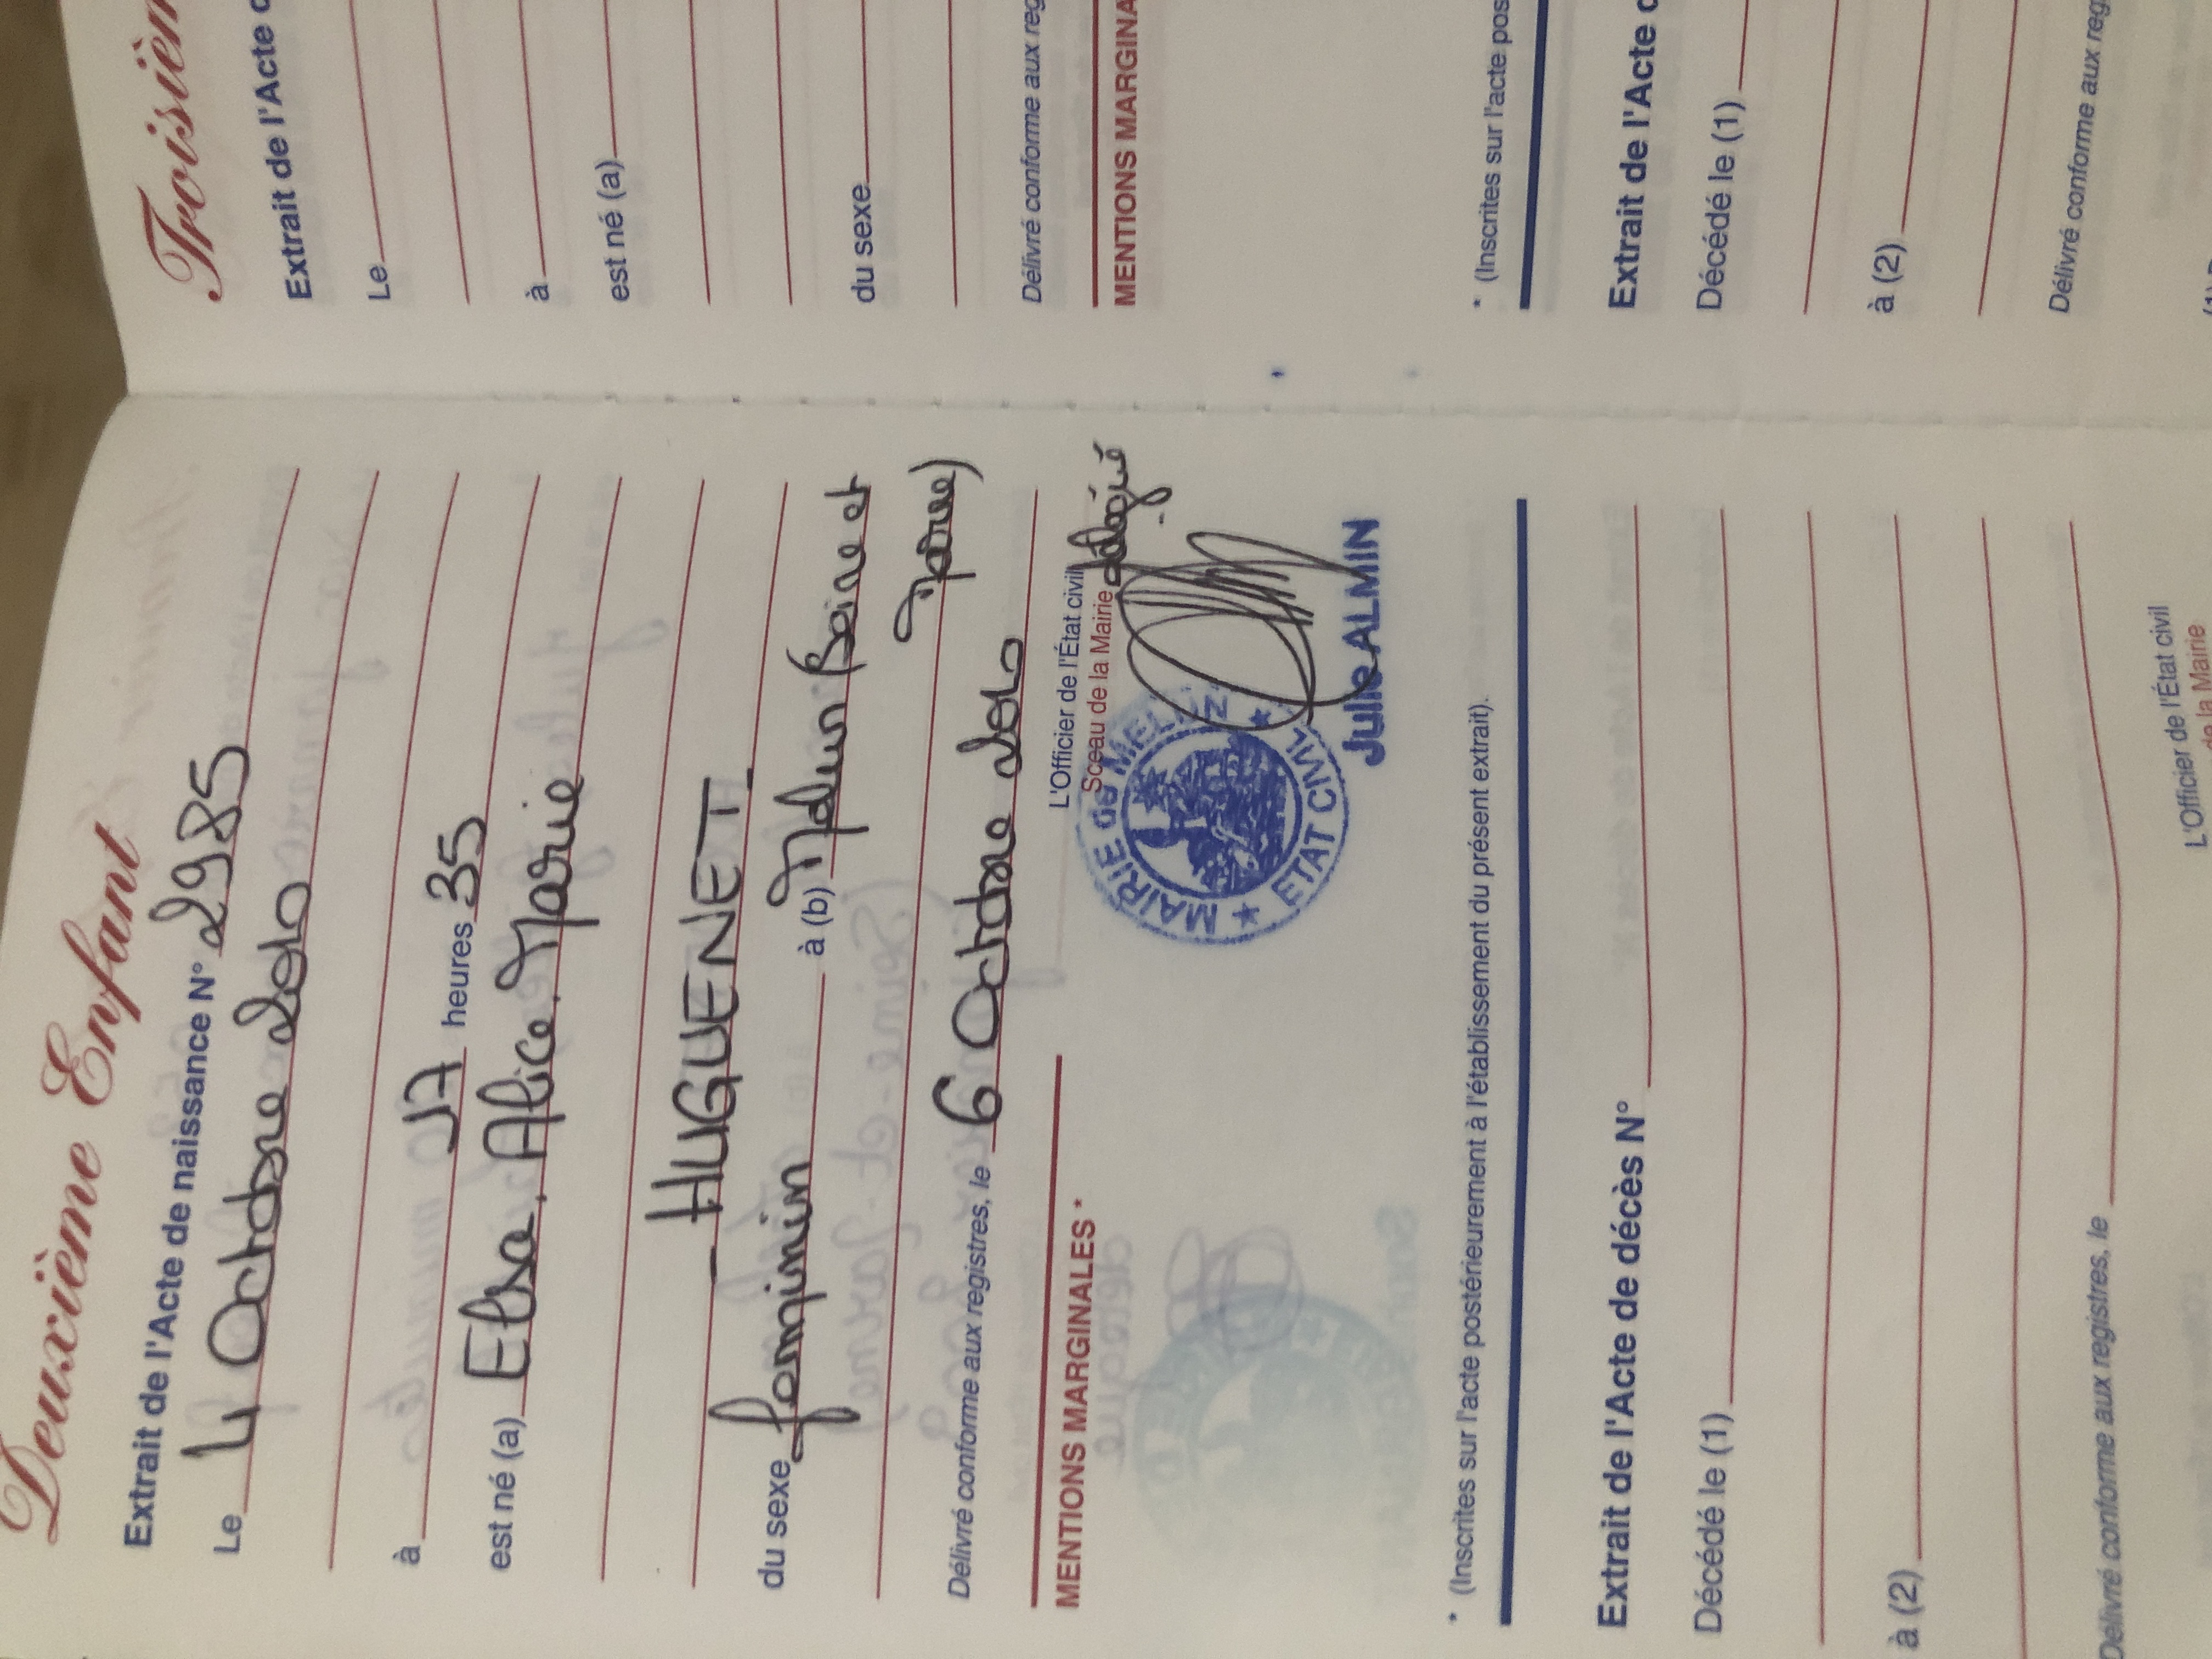 Deuxième Enfant
Extrait de l'Acte de naissance N° 2985
Le 4 Octobre 2010
à 17 heures 35
est né (a) Elsa, Alice, Marie
- HUGUENET -
du sexe féminin à (b) Melun (Seine et
Marne)
Délivré conforme aux registres, le 6 Octobre 2010
L'Officier de l'État civil
Sceau de la Mairie délégué
MENTIONS MARGINALES *
MAIRIE de MELUN
ETAT CIVIL
Julie ALMIN
* (Inscrites sur l'acte postérieurement à l'établissement du présent extrait).
Extrait de l'Acte de décès N°
Décédé le (1)
à (2)
Délivré conforme aux registres, le
L'Officier de l'État civil
de la Mairie
Troisièm
Extrait de l'Acte d
Le
à
est né (a)
du sexe
Délivré conforme aux reg
MENTIONS MARGINA
* (Inscrites sur l'acte pos
Extrait de l'Acte d
Décédé le (1)
à (2)
Délivré conforme aux reg